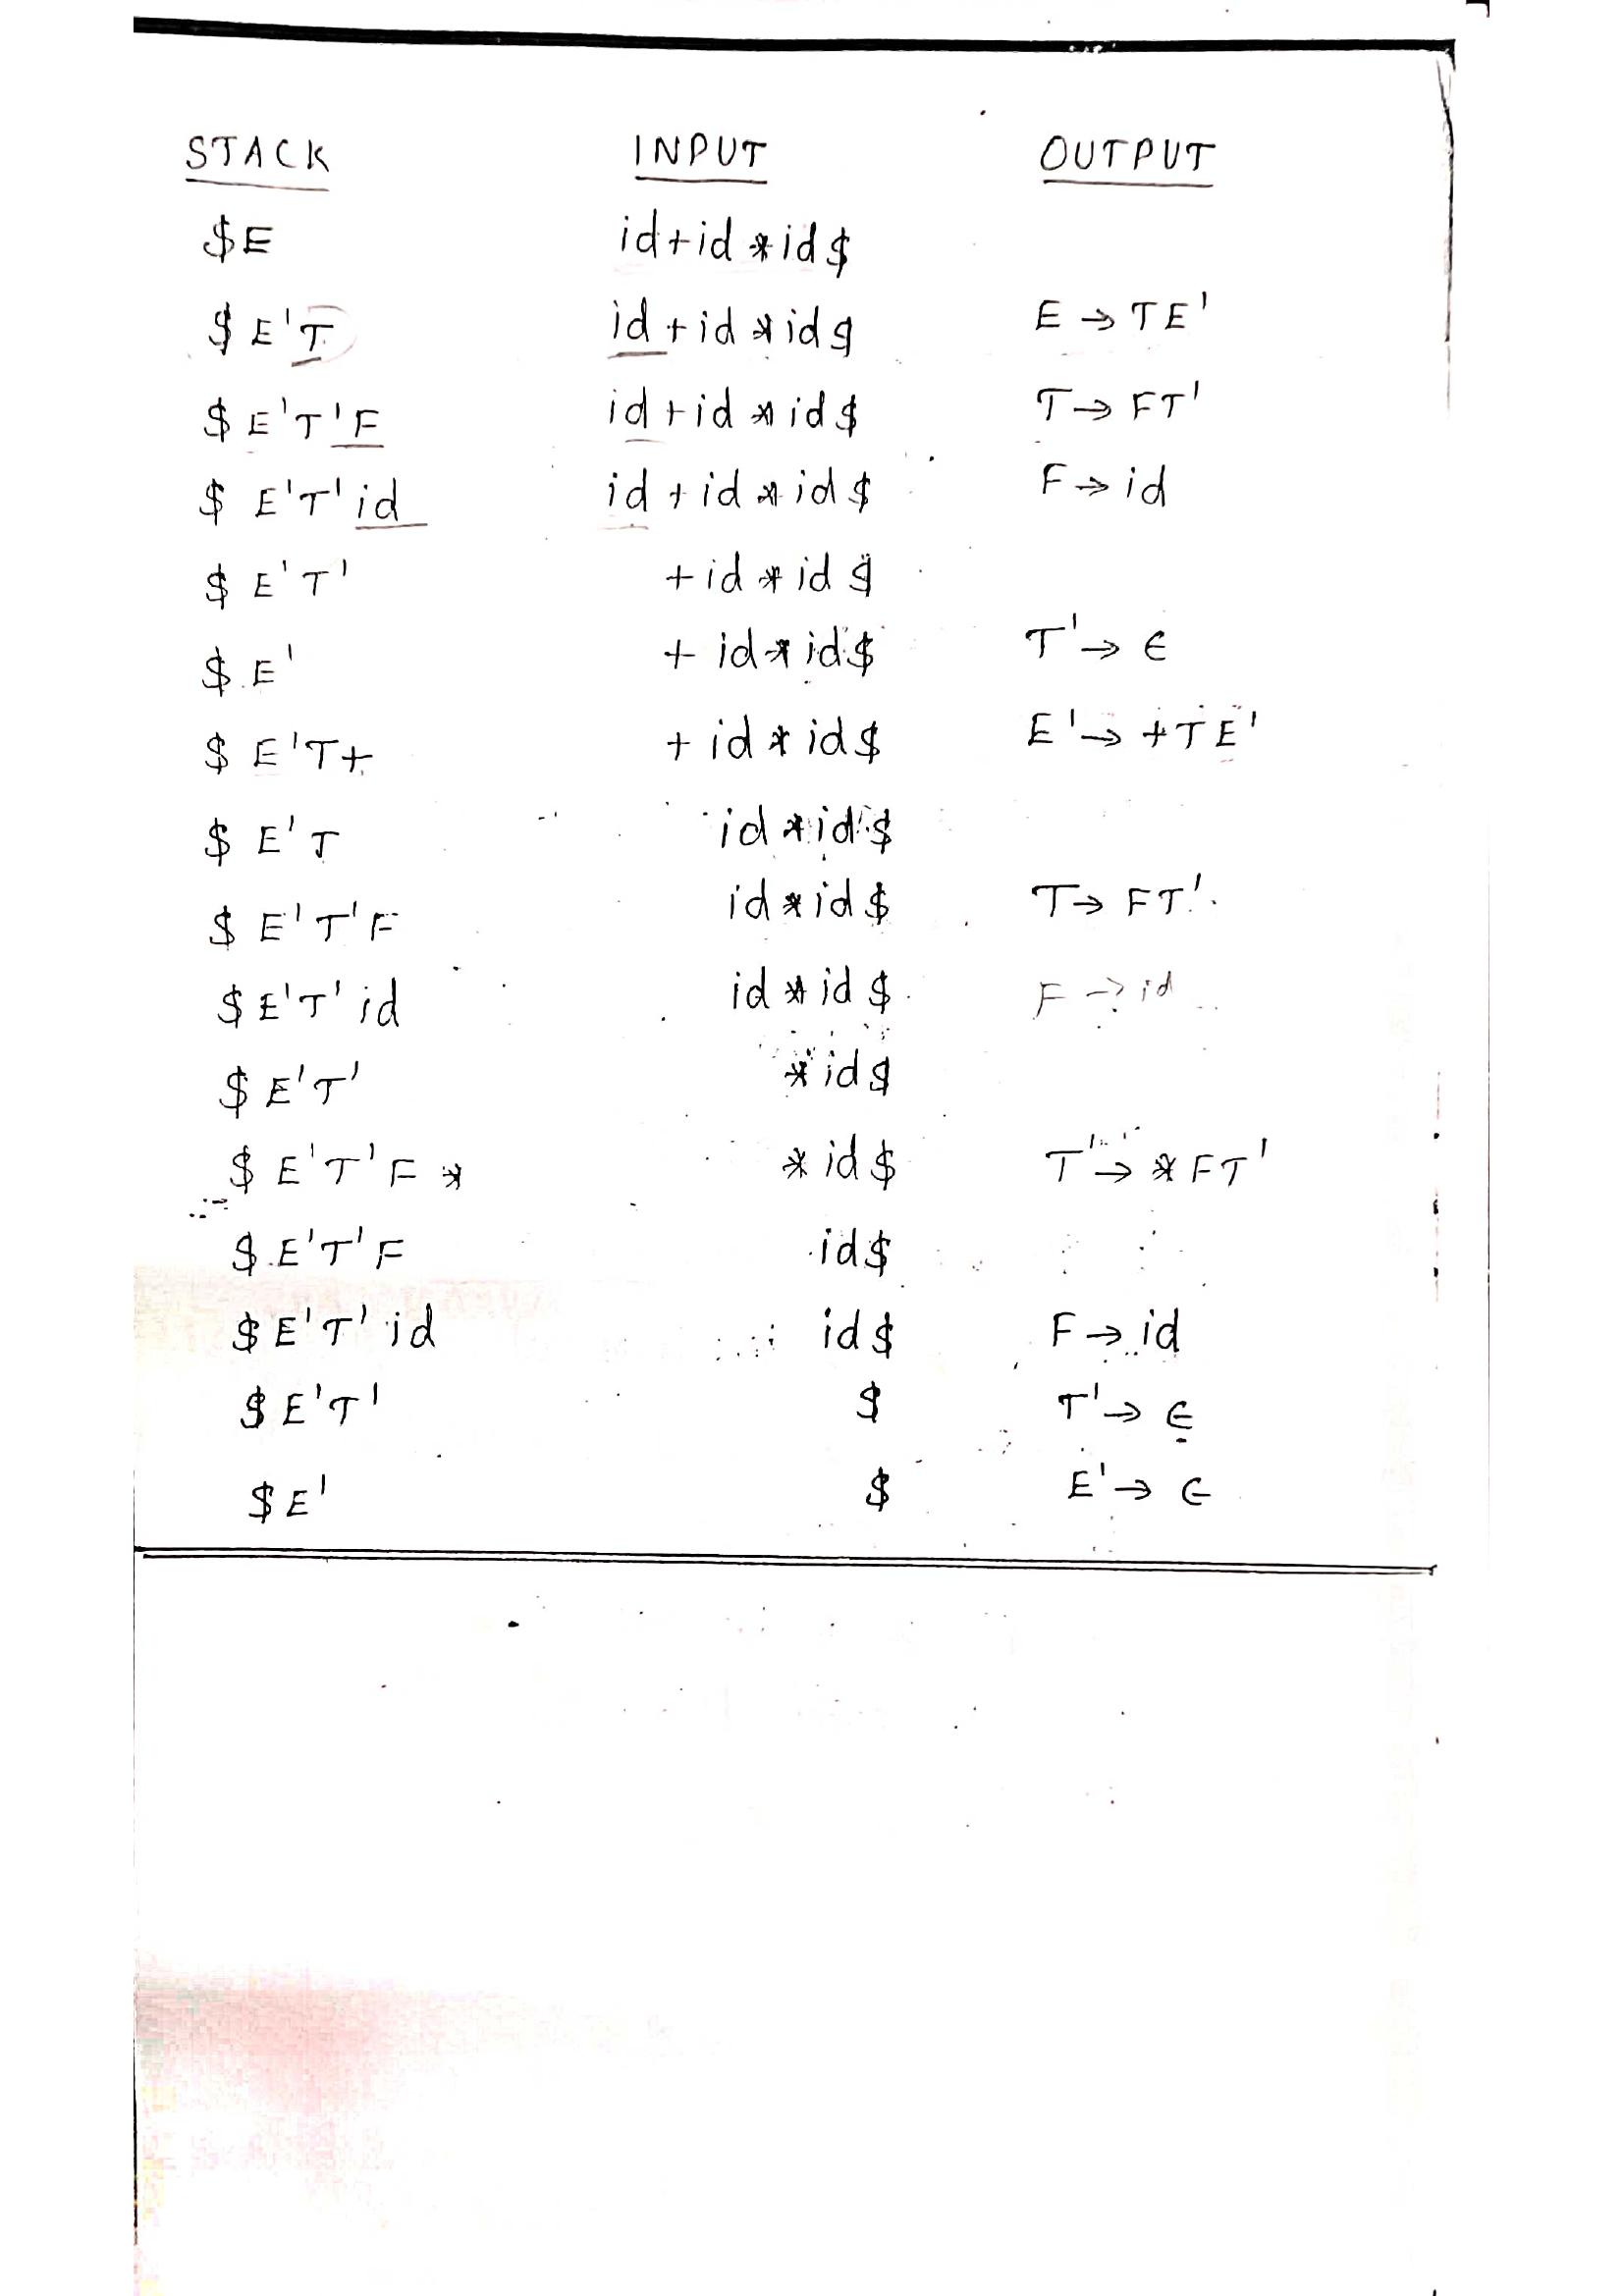 STACK INPUT OUTPUT
$E id+id*id$
$E'T id+id*id$ E→TE'
$E'T'F id+id*id$ T→FT'
$E'T'id id+id*id$ F→id
$E'T' +id*id$
$E' +id*id$ T'→ϵ
$E'T+ +id*id$ E'→+TE'
$E'T id*id$
$E'T'F id*id$ T→FT'
$E'T'id id*id$ F→id
$E'T' *id$
$E'T'F* *id$ T'→*FT'
$E'T'F id$
$E'T'id id$ F→id
$E'T' $ T'→ϵ
$E' $ E'→ϵ